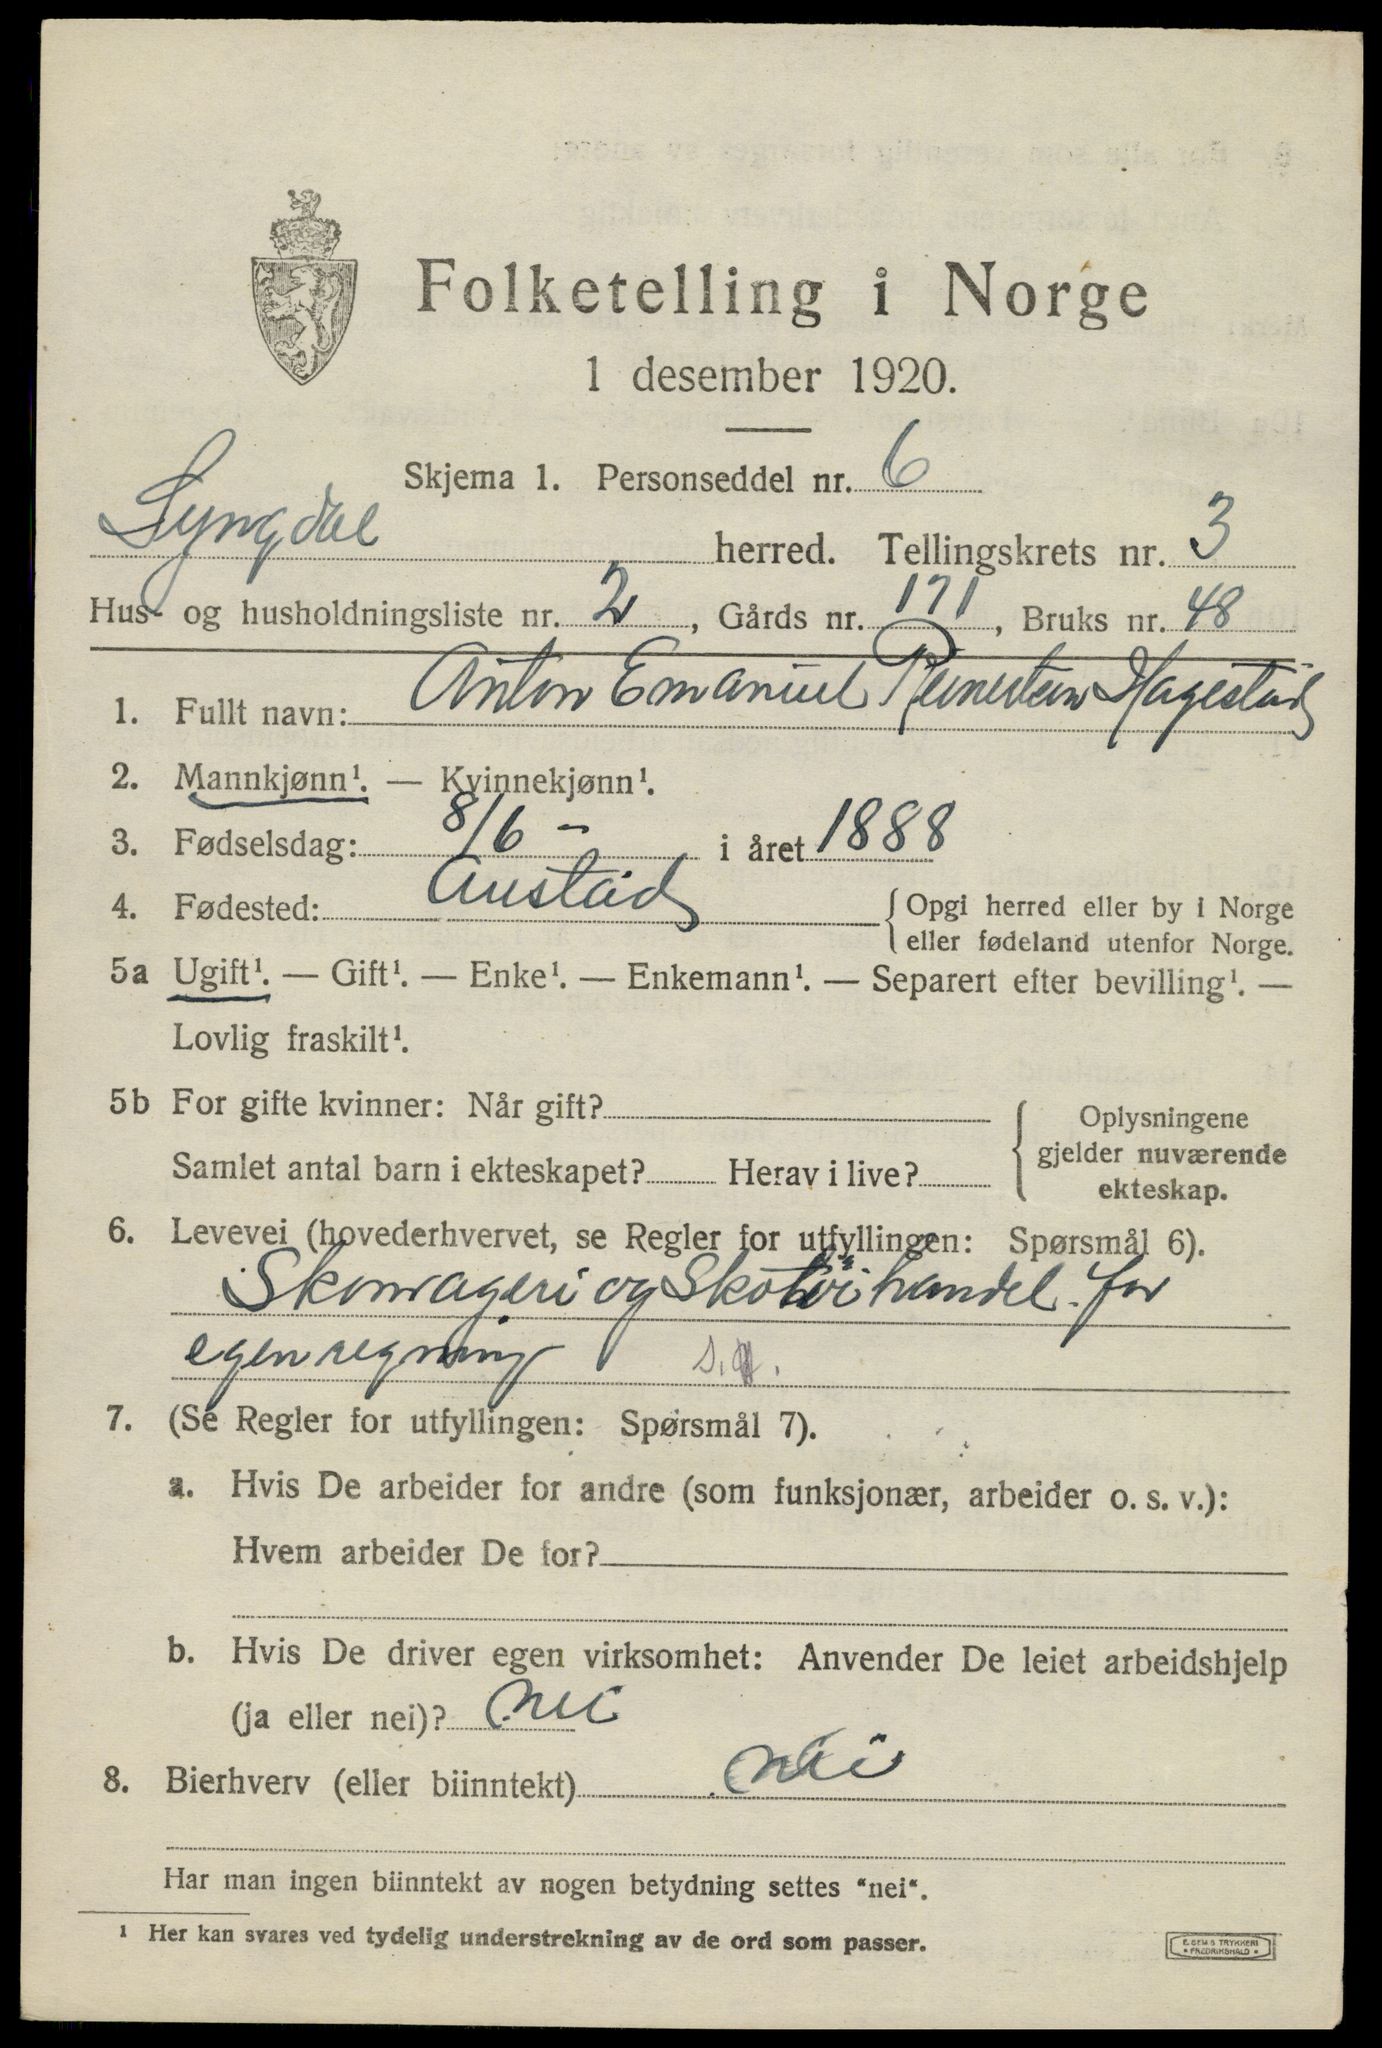 Folketelling i Norge
1 desember 1920.
Skjema 1. Personseddel nr. 6
Lyngdal herred. Tellingskrets nr. 3
Hus- og husholdningsliste nr. 2, Gårds nr. 171, Bruks nr. 48
1. Fullt navn: Anton Emanuel Reinertsen Hagestad
2. Mannkjønn¹. — Kvinnekjønn¹.
3. Fødselsdag: 8/6 - i året 1888
4. Fødested: Austad { Opgi herred eller by i Norge
eller fødeland utenfor Norge.
5a Ugift¹. — Gift¹. — Enke¹. — Enkemann¹. — Separert efter bevilling¹. —
Lovlig fraskilt¹.
5b For gifte kvinner: Når gift?
Samlet antal barn i ekteskapet? Herav i live?
{ Oplysningene
gjelder nuværende
ekteskap.
6. Levevei (hovederhvervet, se Regler for utfyllingen: Spørsmål 6).
Skomageri og Skotøihandel for
egen regning s.
7. (Se Regler for utfyllingen: Spørsmål 7).
a. Hvis De arbeider for andre (som funksjonær, arbeider o. s. v.):
Hvem arbeider De for?
b. Hvis De driver egen virksomhet: Anvender De leiet arbeidshjelp
(ja eller nei)? nei
8. Bierhverv (eller biinntekt) nei
Har man ingen biinntekt av nogen betydning settes "nei".
¹ Her kan svares ved tydelig understrekning av de ord som passer.
E. SEM'S TRYKKERI
• FREDRIKSHALD •